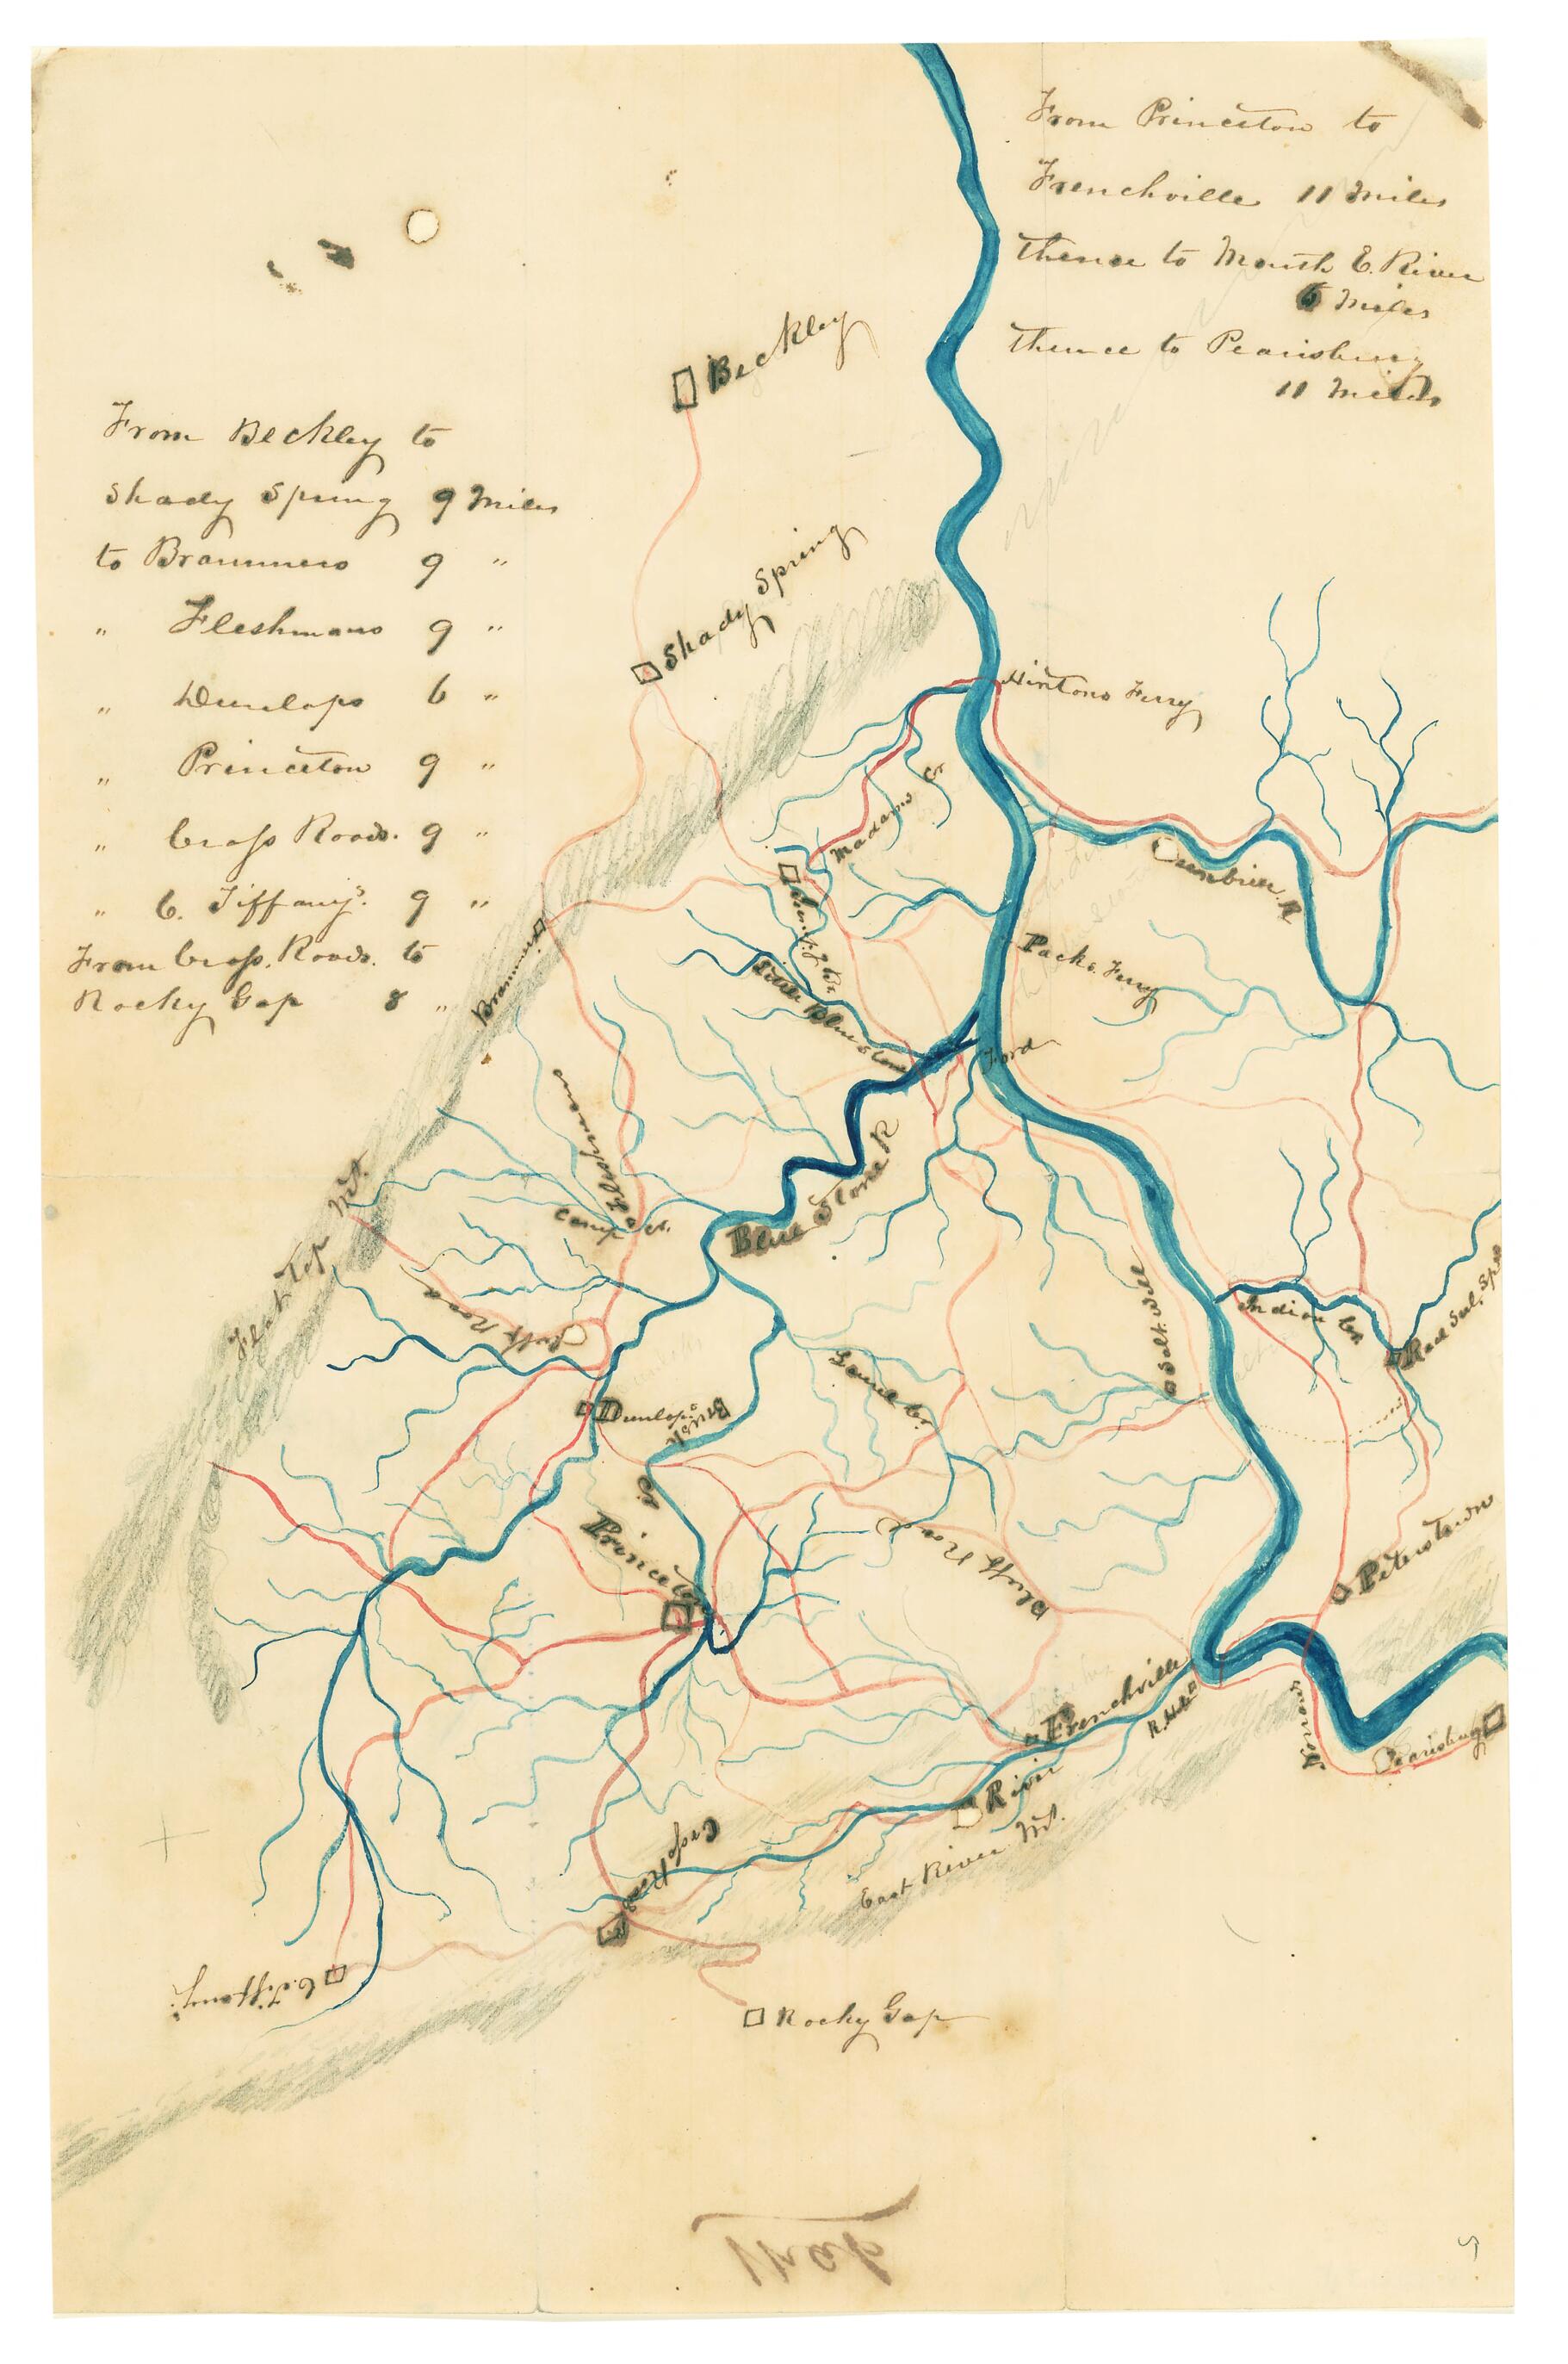 From Princeton to
Frenchville 11 Miles
thence to Mouth E. River
6 Miles
thence to Pearisburg
11 Miles
From Beckley to
Shady Spring 9 Miles
to Brammers 9 "
" Fleshmans 9 "
" Dunlaps 6 "
" Princeton 9 "
" Cross Roads. 9 "
" C. Tiffany's. 9 "
From Cross. Roads. to
Rocky Gap 8 "
Beckley
Shady Spring
Hintons Ferry
Madams Cr
Greenbrier. R
Packs. Ferry
Jump. Br.
Little Blue Stone
Brammers
Ford
Fleshmans
Camp Ck.
Blue Stone R
Flat Top Mt.
Salt. Well
Indian Cr.
Red Sul. Spr
Road
Dunlaps
Brush Cr
Princeton
Bluff Road
Peterstown
Frenchville
Narrows
Pearisburg
River
East River Mt.
Cross Roads
C. Tiffany's
Rocky Gap
Map
5